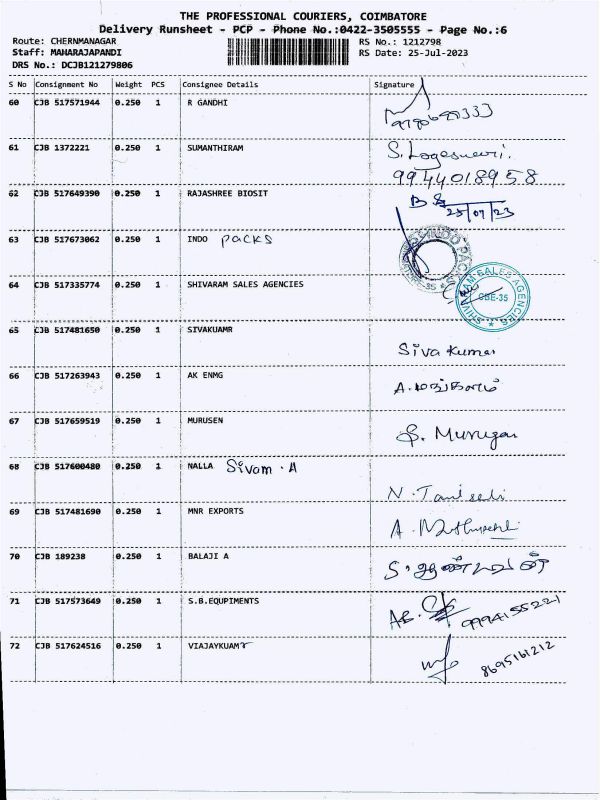 THE PROFESSIONAL COURIERS, COIMBATORE
Delivery Runsheet - PCP - Phone No.:0422-3505555 - Page No.:6
Route: CHERNMANAGAR RS No.: 1212798
Staff: MAHARAJAPANDI RS Date: 25-Jul-2023
DRS No.: DCJB121279806
S No Consignment No Weight PCS Consignee Details Signature
60 CJB 517571944 0.250 1 R GANDHI
61 CJB 1372221 0.250 1 SUMANTHIRAM S. Logesweri.
9944018958
62 CJB 517649390 0.250 1 RAJASHREE BIOSIT
25/07/23
63 CJB 517673062 0.250 1 INDO packs
INDO PACKS
64 CJB 517335774 0.250 1 SHIVARAM SALES AGENCIES
SHIVARAM SALES AGENCIES
CBE-35
65 CJB 517481650 0.250 1 SIVAKUAMR
Siva Kumar
66 CJB 517263943 0.250 1 AK ENMG
67 CJB 517659519 0.250 1 MURUSEN
S. Murugan
68 CJB 517600480 0.250 1 NALLA Sivam . A
69 CJB 517481690 0.250 1 MNR EXPORTS
70 CJB 189238 0.250 1 BALAJI A
71 CJB 517573649 0.250 1 S.B.EQUPIMENTS
9994155221
72 CJB 517624516 0.250 1 VIAJAYKUAMr
8695161212